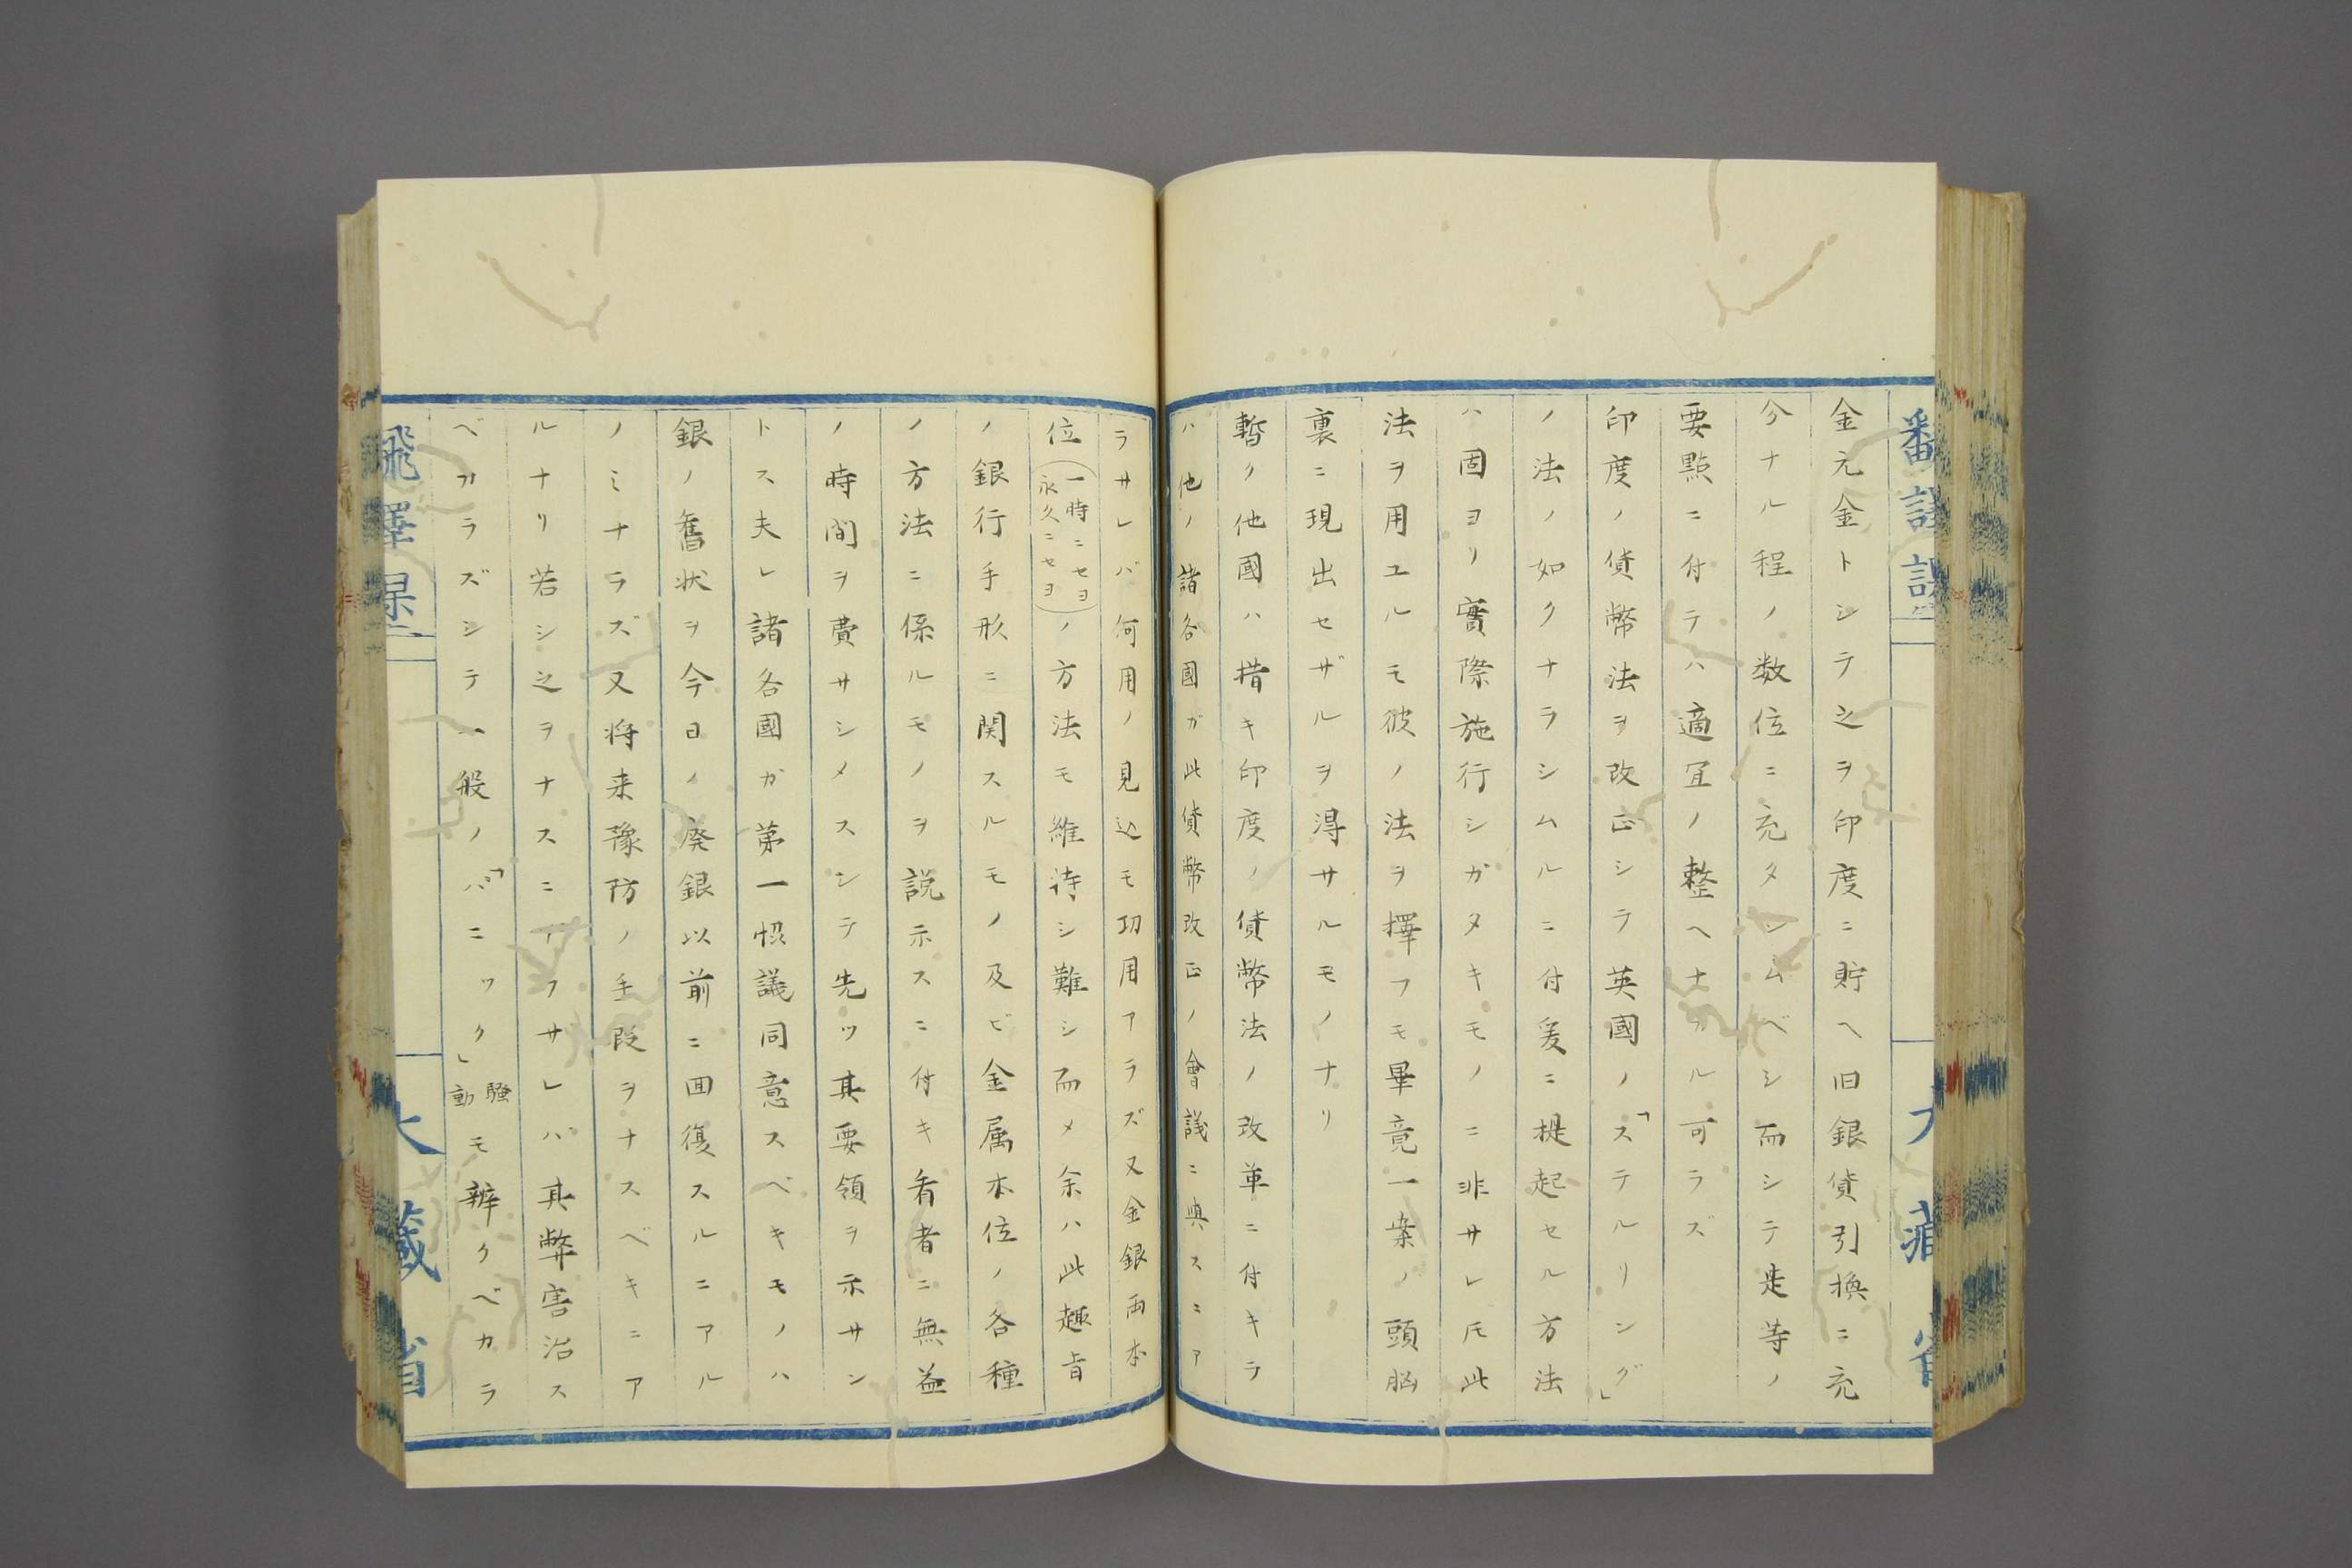 金元金トシテ之ヲ印度ニ貯ヘ旧銀貨引換ニ充
分ナル程ノ数位ニ充タシムベシ而シテ是等ノ
要點ニ付テハ適冝ノ整ヘナカル可ラズ
印度ノ貨幣法ヲ改正シテ英國ノ「ステルリング」
ノ法ノ如クナラシムルニ付爰ニ提起セル方法
ハ固ヨリ實際施行シガタキモノニ非サレ𪜈此
法ヲ用ユルモ彼ノ法ヲ擇フモ畢竟一案ノ頭脳
裏ニ現出セザルヲ得サルモノナリ
暫ク他國ハ措キ印度ノ貨幣法ノ改革ニ付キテ
ハ他ノ諸各國ガ此貨幣改正ノ會議ニ與スニア
ラサレバ何用ノ見込モ功用アラズ又金銀両本
位(一時ニセヨ永久ニセヨ)ノ方法モ維持シ難シ而メ余ハ此趣旨
ノ銀行手形ニ関スルモノ及ビ金属本位ノ各種
ノ方法ニ係ルモノヲ説示スニ付キ看者ニ無益
ノ時間ヲ費サシメスシテ先ツ其要領ヲ示サン
トス夫レ諸各國ガ第一恊議同意スベキモノハ
銀ノ舊状ヲ今日ノ廃銀以前ニ囬復スルニアル
ノミナラズ又将来豫防ノ手段ヲナスベキニア
ルナリ若シ之ヲナスニアラサレバ其弊害治ス
ベカラズシテ一般ノ「パニック」騒動モ辨クベカラ
大藏省
大藏省